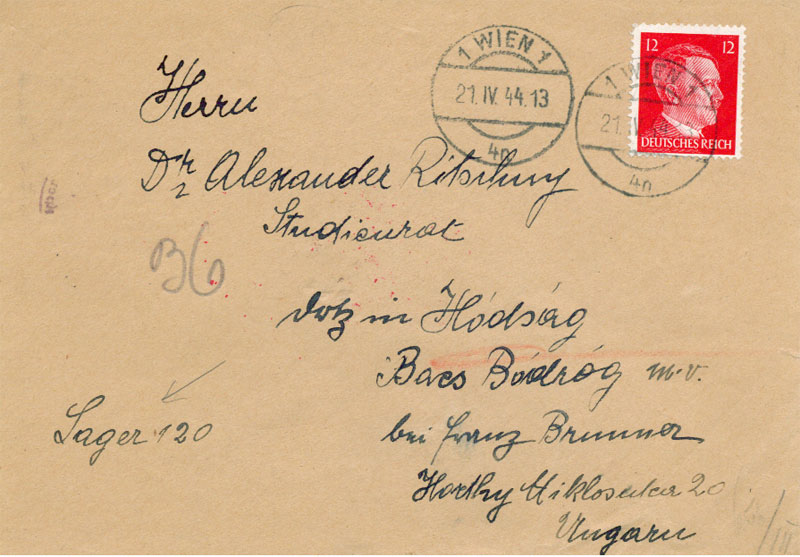 12 12
DEUTSCHES REICH
1 WIEN 1
21.IV.44.13
4n
1 WIEN 1
21.IV
4n
Herrn
Dr. Alexander
Studienrat
B6
in Hódság
Bacs Bódróg m.v.
bei Franz Brunner
Horthy Miklos 20
Ungarn
Lager 120